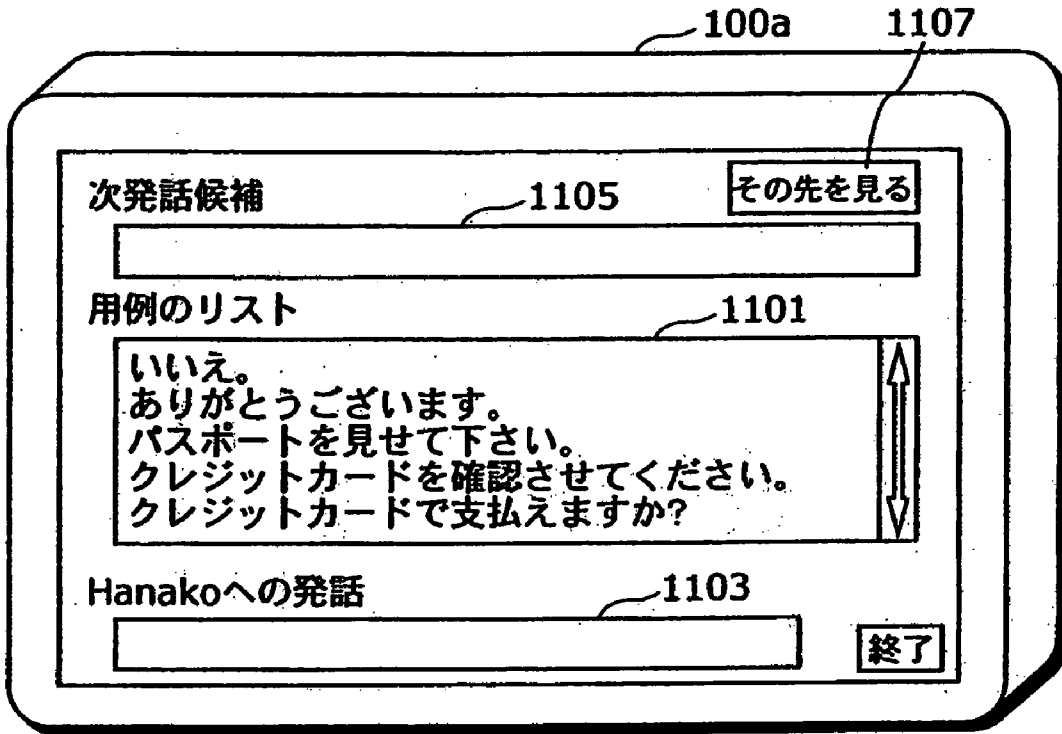 100a 1107
次発話候補 1105 その先を見る
用例のリスト 1101
いいえ。
ありがとうございます。
パスポートを見せて下さい。
クレジットカードを確認させてください。
クレジットカードで支払えますか?
Hanakoへの発話 1103
終了